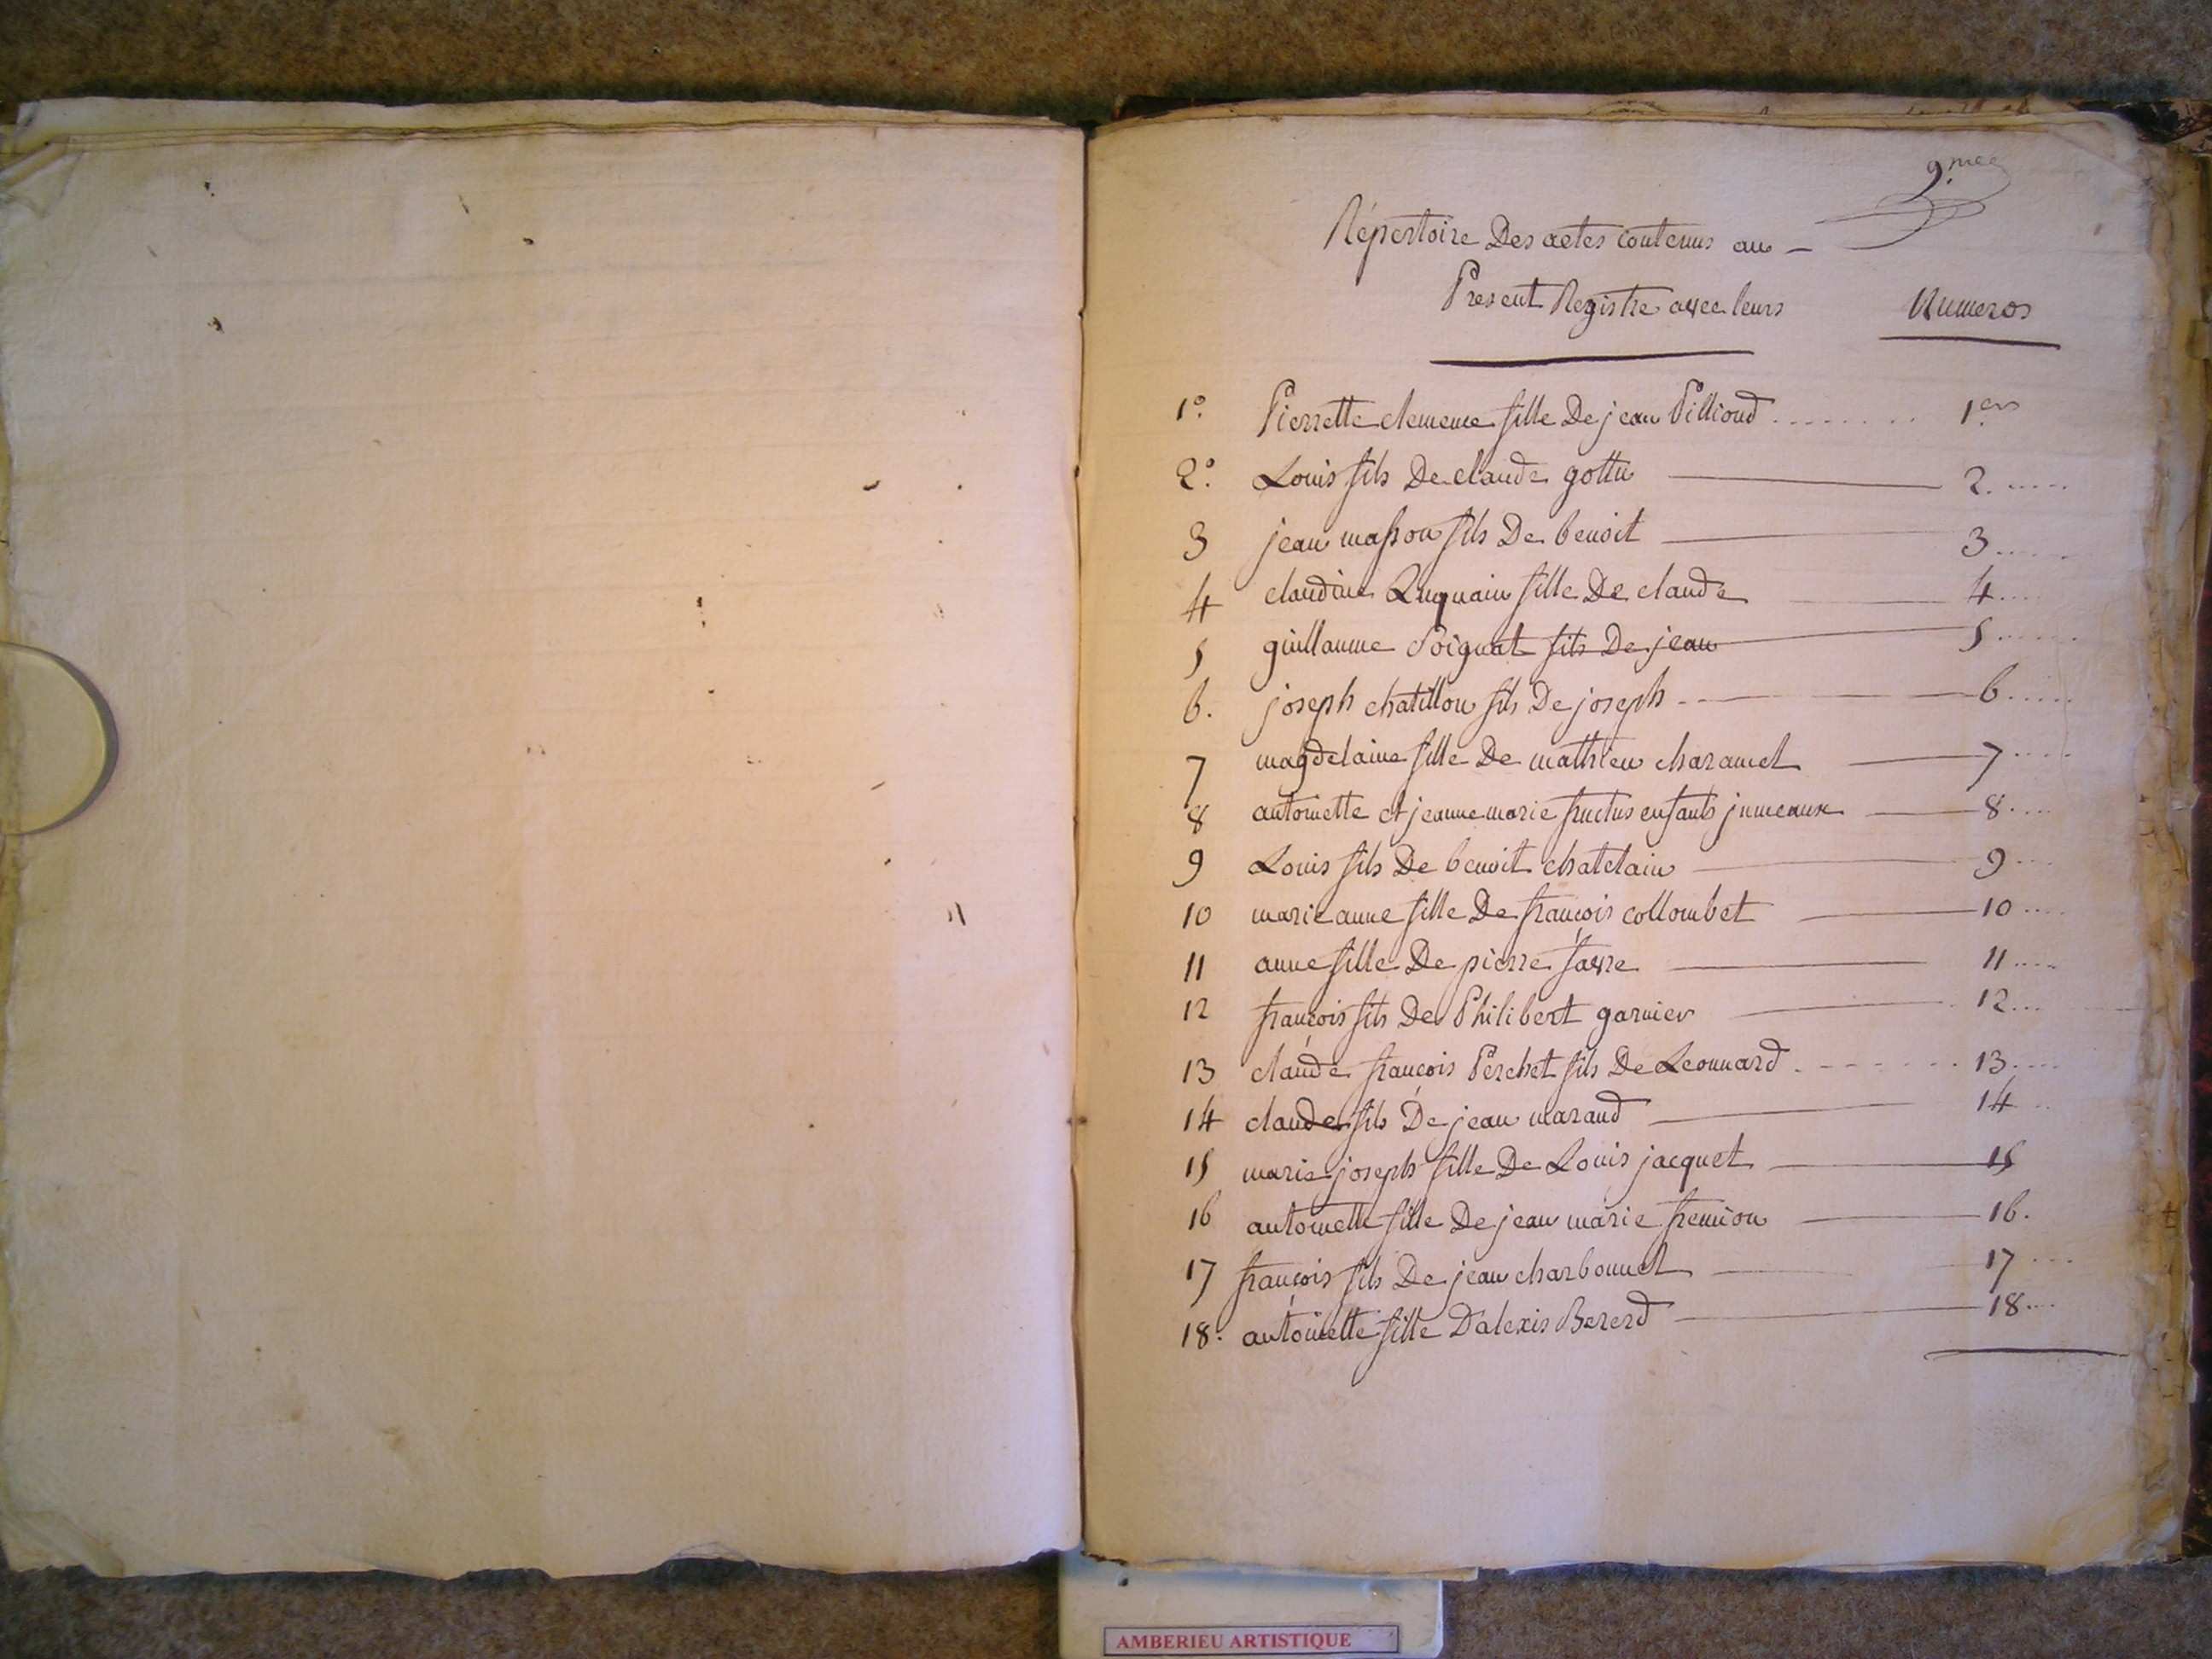 9.me
Répertoire Des actes contenus au
Present Registre avec leurs Numeros
1° Pierrette clemence fille De jean Pilliond ........ 1er
2° Louis fils De claude gottu 2.....
3 jean masson fils De benoit 3.....
4 claudine fille De claude 4....
5 guillaume Poignat fils De jean 5......
6. joseph chatillon fils De joseph 6.....
7 magdelaine fille De mathieu charamel 7.....
8 antoinette et jeanne marie fructus enfants jumeaux 8....
9 Louis fils De benoit chatelain 9....
10 marie anne fille De françois collombet 10....
11 anne fille De pierre favre 11....
12 françois fils De Philibert garnier 12...
13 claude françois Perchet fils De Leonnard 13....
14 claude fils De jean maraud 14..
15 marie joseph fille De Louis jacquet 15
16 antoinette fille De jean marie fremion 16.
17 françois fils De jean charbonnet 17...
18. antoinette fille D'alexis Bererd 18....
AMBERIEU ARTISTIQUE